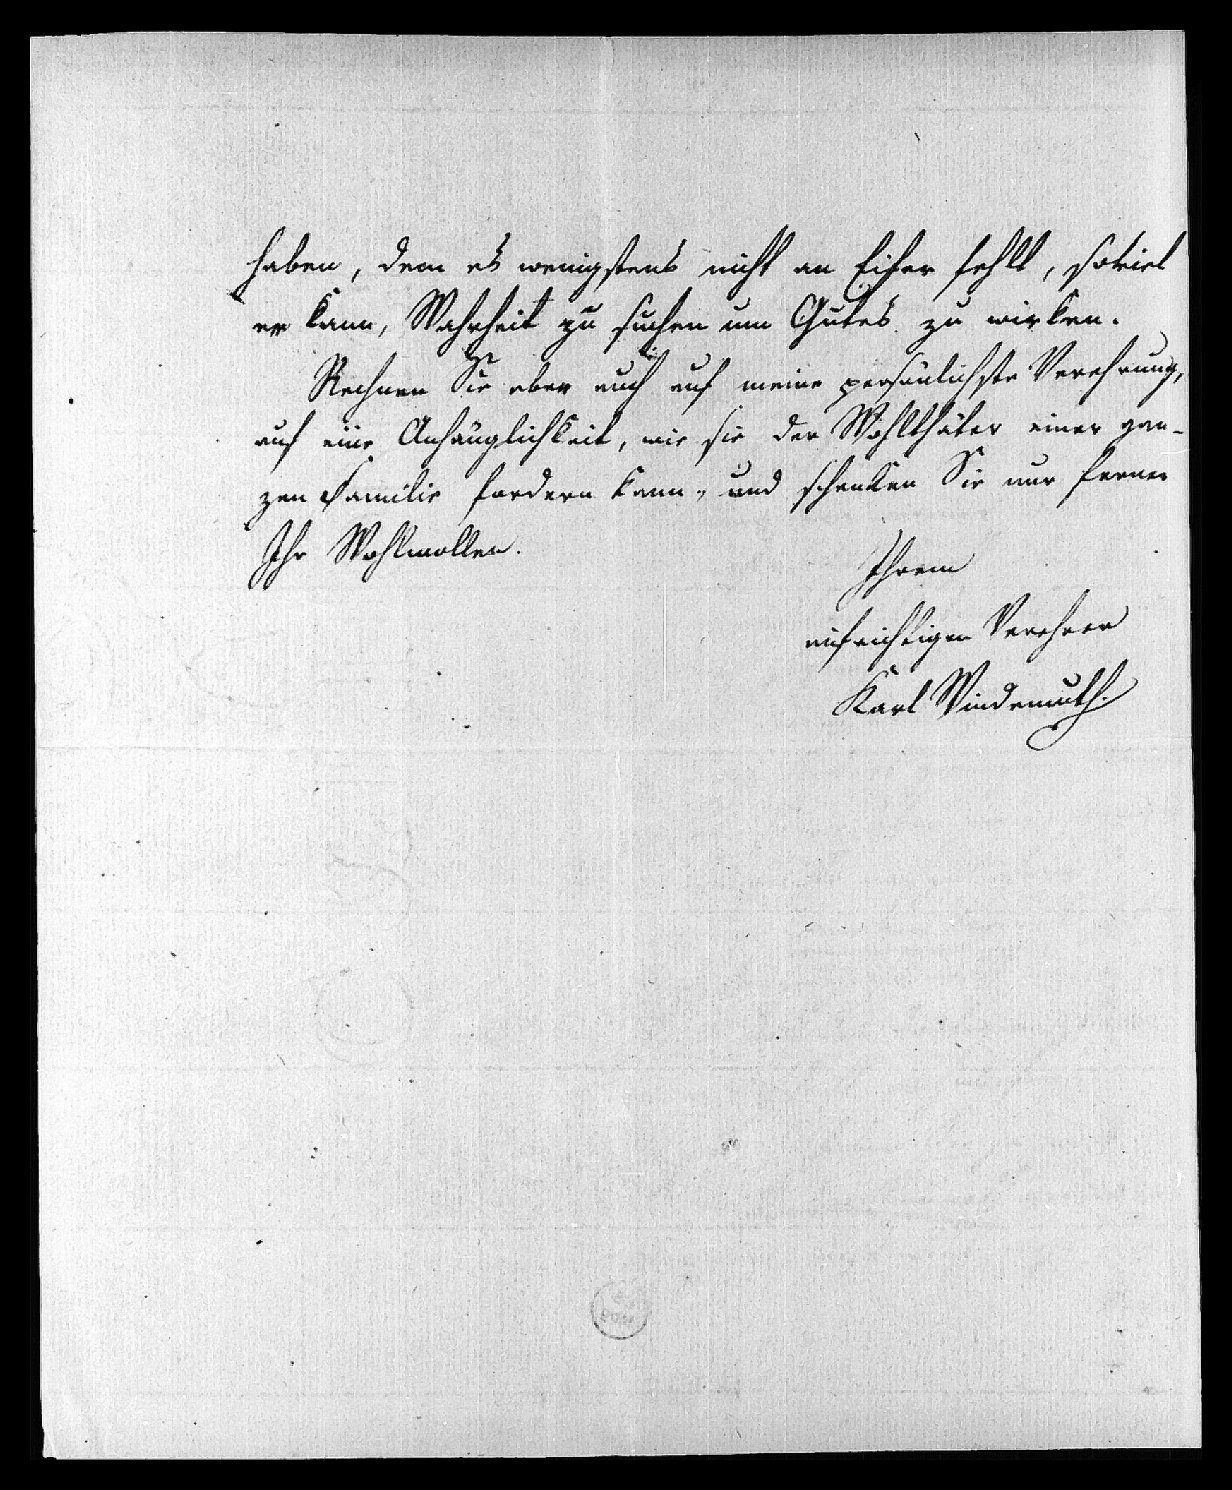 haben, dem es wenigstens nicht an Eifer fehlt, soviel
er kann, Wahrheit zu suchen um Gutes zu wirken.
Rechnen Sie aber auch auf meine persönlichste Verehrung,
auf eine Anhänglichkeit, wie sie der Wohlthäter einer gan-
zen Familie fordern kann, und schenken Sie nur ferner
Ihr Wohlwollen.
Ihrem
aufrichtigen Verehrer
Karl Windemuth.